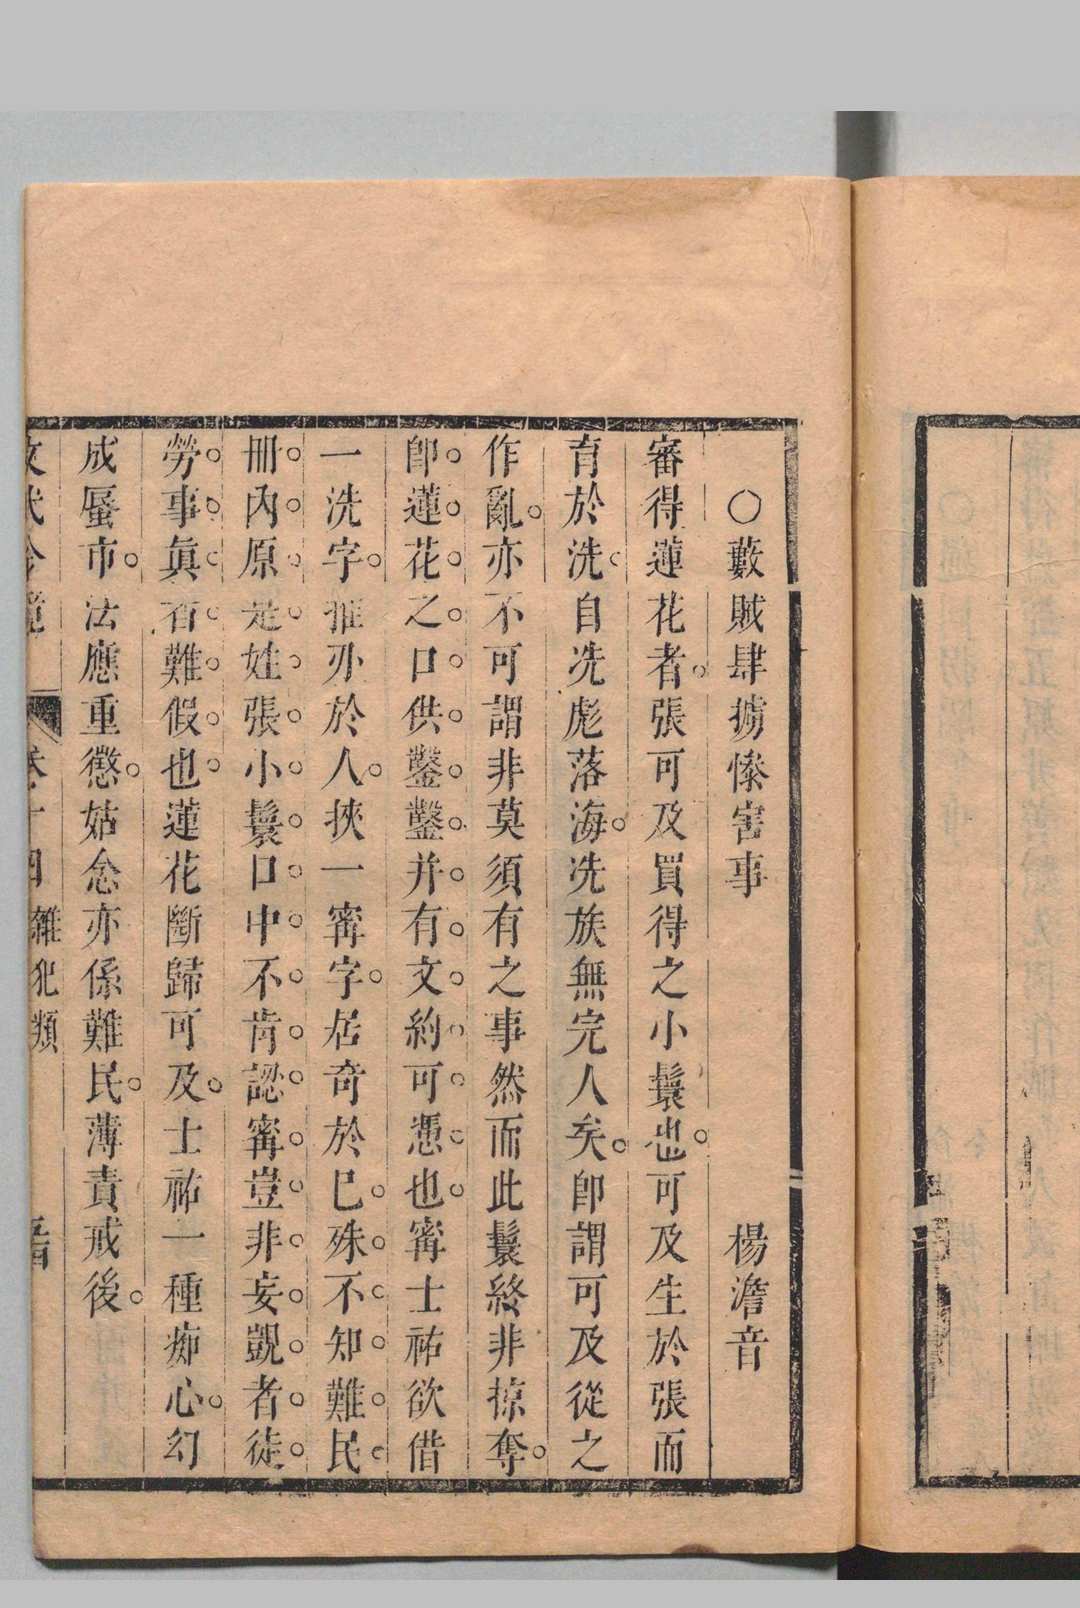 ○藪賊肆擄慘害事　楊澹音
審得蓮花者張可及買得之小鬟也可及生於張而
育於冼自冼彪落海冼族無完人矣卽謂可及從之
作亂亦不可謂非莫須有之事然而此鬟終非掠奪
卽蓮花之口供鑿鑿并有文約可憑也甯士祐欲借
一洗字推刅於人挾一甯字居奇於巳殊不知難民
冊內原是姓張小鬟口中不肯認甯豈非妄覬者徒
勞事眞者難假也蓮花斷歸可及士祐一種痴心幻
成蜃市法應重懲姑念亦係難民薄責戒後
卷十四 雜犯類